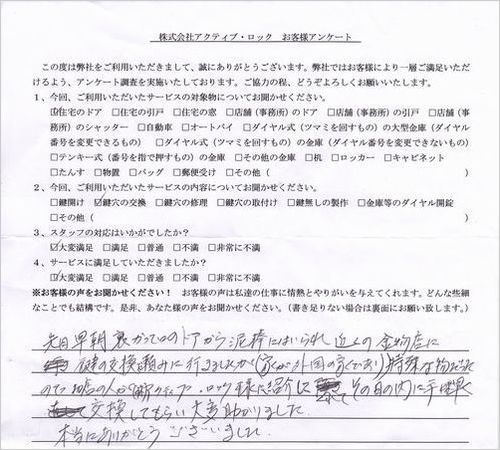 株式会社アクティブ・ロック お客様アンケート
この度は弊社をご利用いただきまして、誠にありがとうございます。弊社ではお客様により一層ご満足いただ
けるよう、アンケート調査を実施いたしております。ご協力の程、どうぞよろしくお願いいたします。
1、今回、ご利用いただいたサービスの対象物についてお聞かせください。
☑住宅のドア □住宅の引戸 □住宅の窓 □店舗(事務所)のドア □店舗(事務所)の引戸 □店舗(事
務所)のシャッター □自動車 □オートバイ □ダイヤル式(ツマミを回すもの)の大型金庫(ダイヤル
番号を変更できるもの) □ダイヤル式(ツマミを回すもの)の金庫(ダイヤル番号を変更できないもの)
□テンキー式(番号を指で押すもの)の金庫 □その他の金庫 □机 □ロッカー □キャビネット
□たんす □物置 □バッグ □郵便受け □その他( )
2、今回、ご利用いただいたサービスの内容についてお聞かせください。
□鍵開け ☑鍵穴の交換 □鍵穴の修理 □鍵穴の取付け □鍵無しの製作 □金庫等のダイヤル開錠
□その他( )
3、スタッフの対応はいかがでしたか?
☑大変満足 □満足 □普通 □不満 □非常に不満
4、サービスに満足していただきましたか?
☑大変満足 □満足 □普通 □不満 □非常に不満
※お客様の声をお聞かせください! お客様の声は私達の仕事に情熱とやりがいを与えてくれます。どんな些細
なことでも結構です。是非、あなた様の声をお聞かせください。(書き足りない場合は裏面にお願い致します。)
先日早朝裏がっ口のドアから泥棒にはいられ近くの金物店に
鍵の交換頼みに行きましたが(家が外国の家であり)特殊な物
ので 店の人が ロック様に紹介 その日の内に手早く
交換してもらい大変助かりました
本当にありがとうございました